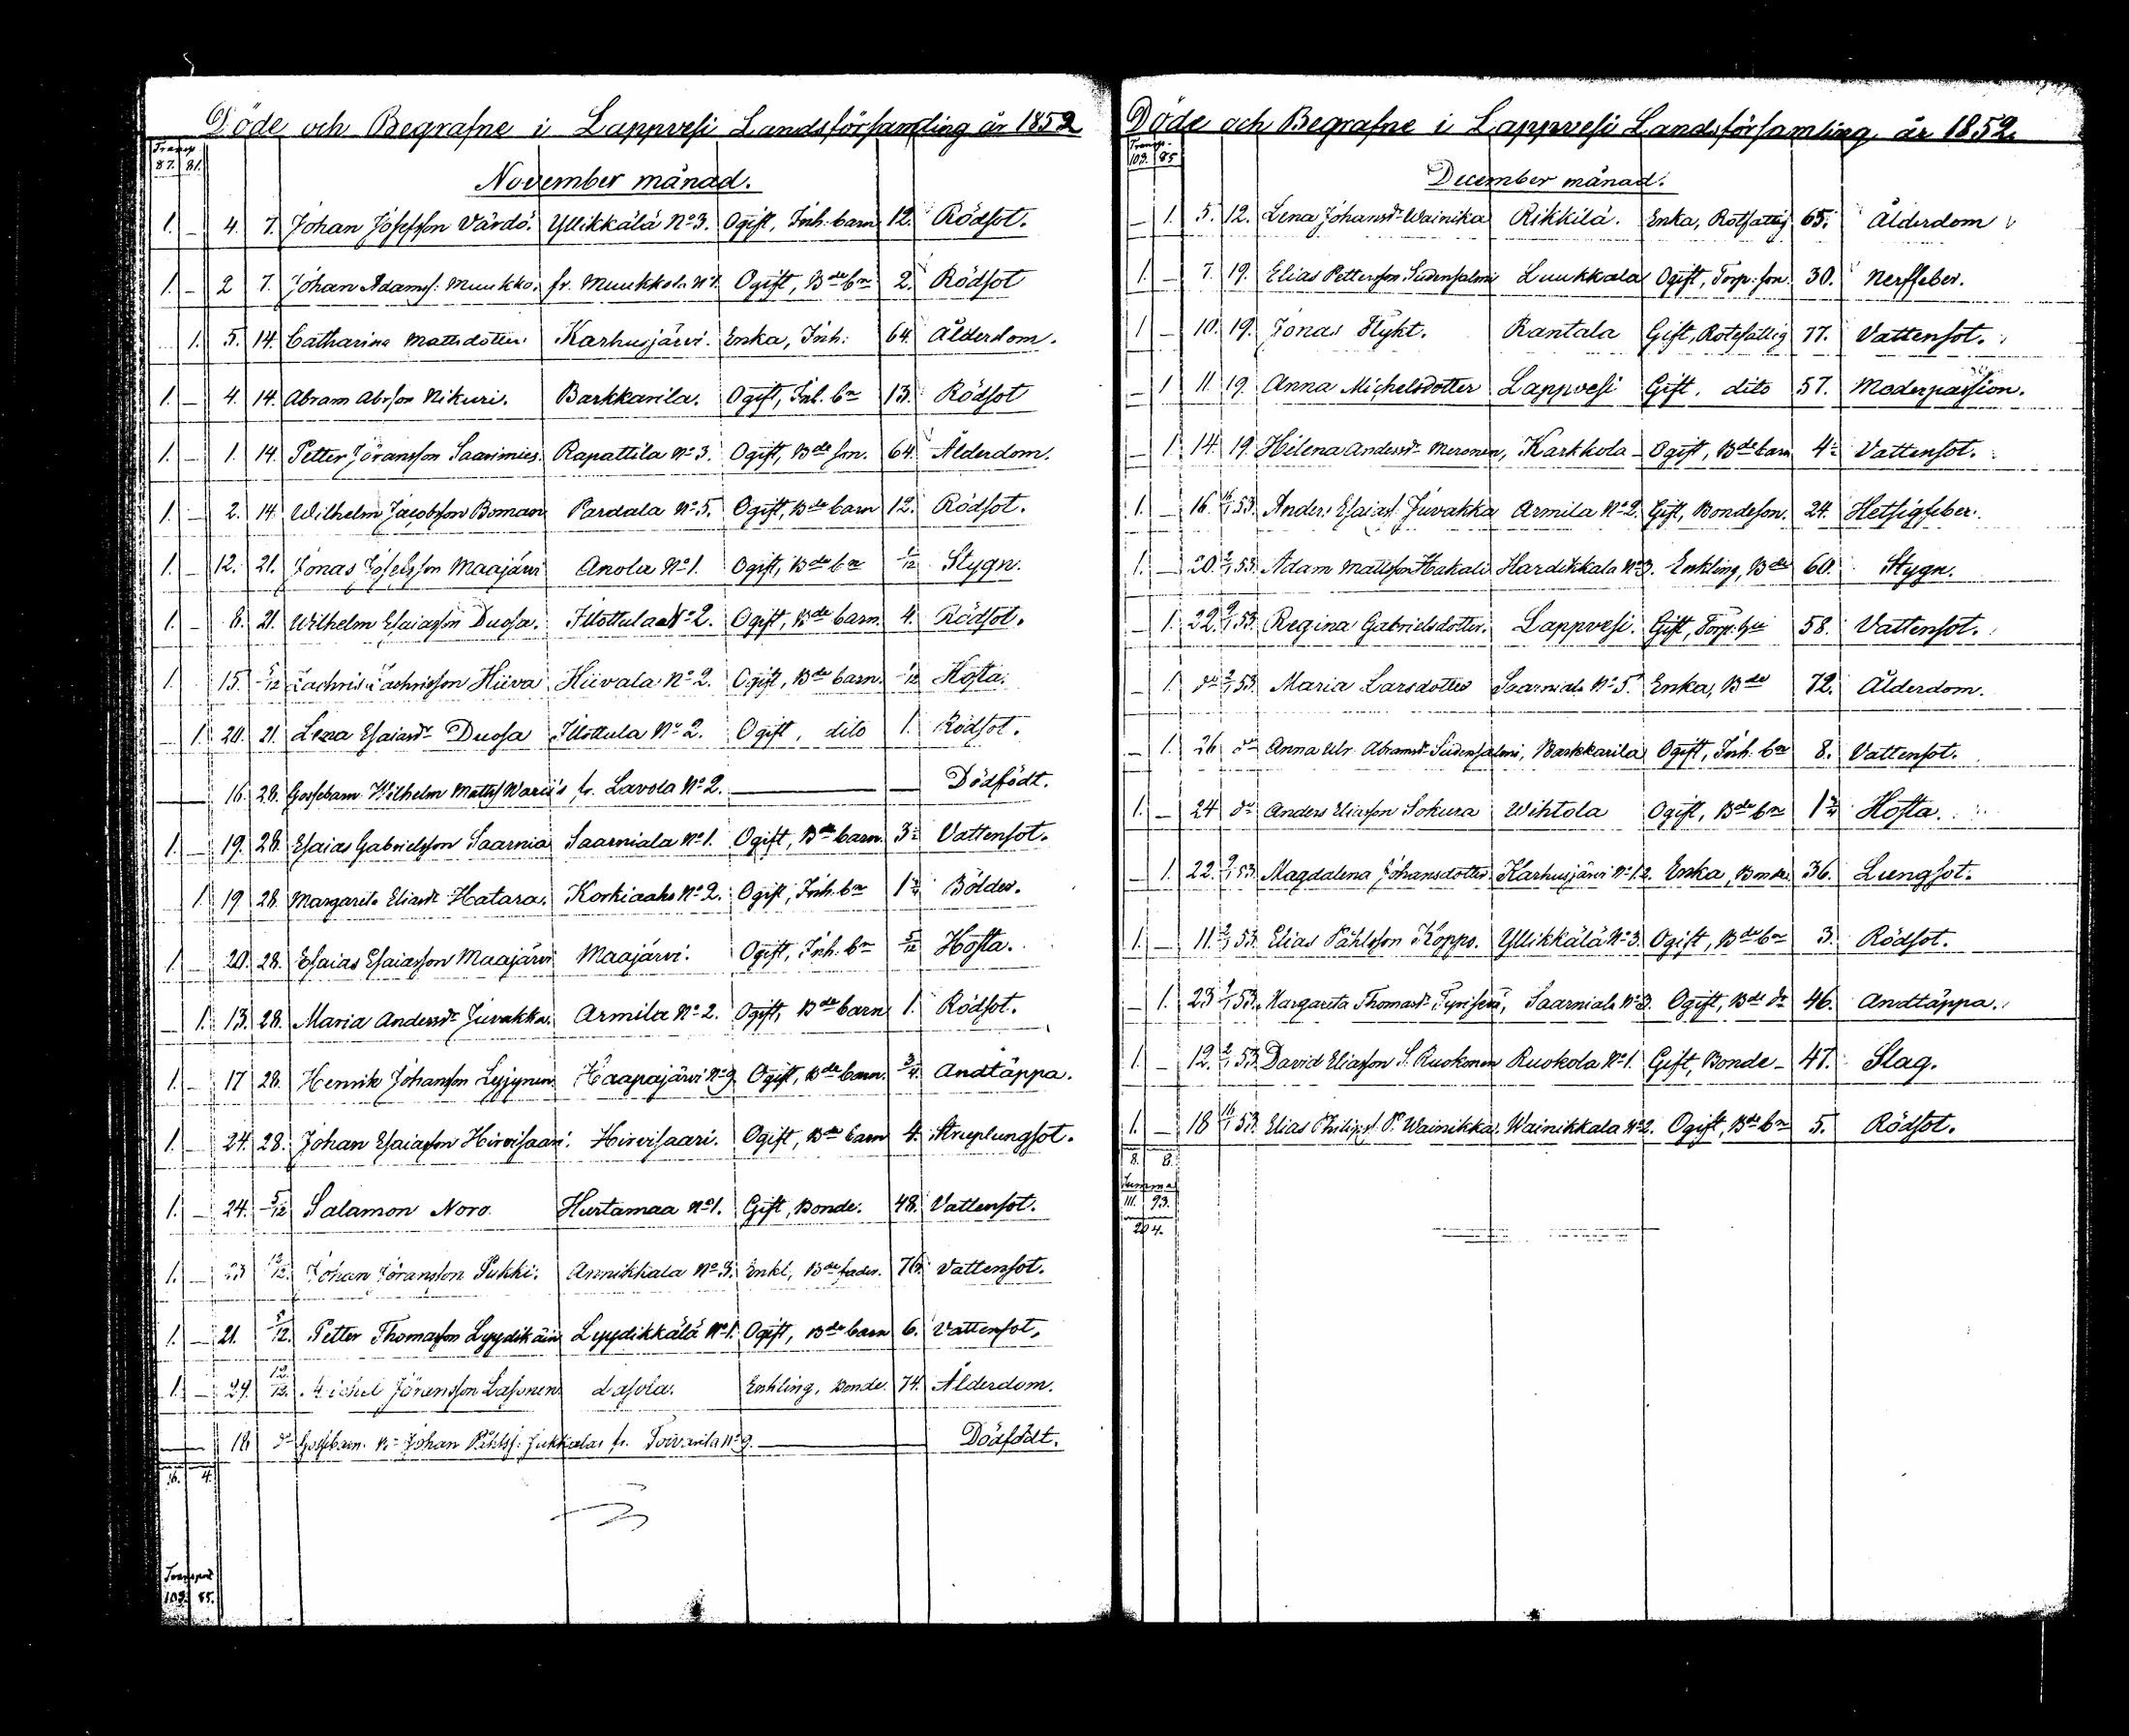 Döde och Begrafne i Lappvesi Landsförsamling år 1852
Transp.
87. 81.
November månad.
1. — 4. 7. Johan Josefsson Värdö. Yllikkälä No 3. Ogift, Inh. barn 12. Rödsot.
1. — 2 7. Johan Adamss. Muukko. fr. Muukkola No 1. Ogift, Bde bn 2. Rödsot
1. 5. 14. Catharina Mattsdotter Karhusjärvi. Enka, Inh. 64. Ålderdom.
1. — 4. 14. Abram Abrson Nikuri. Barkkarila. Ogift, Inh. bn 13. Rödsot
1. — 1. 14. Petter Jöransson Saarimies. Rapattila No 3. Ogift, Bde son. 64. Ålderdom.
1. — 2. 14. Wilhelm Jacobsson Boman Pardala No 5. Ogift, Bde barn 12. Rödsot.
1. — 12. 21. Jonas Josefsson Maajärvi Anola No 1. Ogift, Bde bn 1/12 Stygn.
1. — 8. 21. Wilhelm Esaiasson Duosa. Ilottula No 2. Ogift, Bde barn. 4. Rödsot.
1. 15. 5/12 Zachris Zachrisson Hiiva Hiivala No 2. Ogift, Bde barn. 1/12 Hosta.
— 1. 20. 21. Lena Esaiasdr Duosa Ilottula No 2. Ogift, dito 1. Rödsot.
— 16. 28. Gossebarn Wilhelm Mattss Warii's fr. Lavola No 2. — — Dödfödt.
1. — 19. 28. Esaias Gabrielsson Saarnia Saarniala No 1. Ogift, Bde barn. 3 Vattensot.
1. 19 28. Margareta Eliasdr Hatara. Korkiaaho No 2. Ogift, Inh. bn 1 Bölder.
1. — 20. 28. Esaias Esaiasson Maajärvi Maajärvi. Ogift, Inh. bn 5/12 Hosta.
— 1. 13. 28. Maria Andersdr Juvakka. Armila No 2. Ogift, Bde barn 1. Rödsot.
1. — 17 28. Henrik Johansson Lyjynen Haapajärvi No 9 Ogift, Bde barn. 3/4 Andtäppa.
1. — 24. 28. Johan Esaiasson Hirvisaari. Hirvisaari. Ogift, Bde barn 4. Struplungsot.
1. — 24. 5/12 Salamon Noro. Hurtamaa No 1. Gift, Bonde. 48. Vattensot.
1. — 23 12/12. Johan Jöransson Pukki. Annikkala No 3. Enkl, Bde fader. 76. Vattensot.
1. — 21. 5/12. Petter Thomasson Lyydikäin Lyydikkälä No 1. Ogift, Bde barn 6. Vattensot.
1. — 29. 12/12. Michel Jöransson Lasonen Lasola. Enkling, Bonde. 74. Ålderdom.
— 18. do Gossebarn. Johan Påhlss. Jukkalas fr. Toivarila No 9. — Dödfödt.
16. 4.
Transport
103. 85.
Döde och Begrafne i Lappvesi Landsförsamling år 1852.
Transp.
103. 85
December månad.
— 1. 5. 12. Lena Johansdr Wainika Rikkilä. Enka, Rotfattig 65. Ålderdom
1. — 7. 19. Elias Pettersson Sudensalmi Luukkala Ogift, Torp. son. 30. Nerffeber.
1 — 10. 19. Jonas Flykt. Rantala Gift, Rotefattig 77. Vattensot.
— 1 11. 19. Anna Michelsdotter Lappvesi Gift, dito 57. Moderpassion.
— 1 14. 19. Helena Andersdr Meronen, Karkkola Ogift, Bde barn 4 Vattensot.
1. — 16. 16/1 53. Anders Esaiass. Juvakka Armila No 2. Gift, Bondeson. 24. Hetsigfeber.
1. — 20. 2/1 53. Adam Mattsson Hakali Hardikkala No 3. Enkling, Bde 60. Stygn.
— 1. 22. 9/1 53. Regina Gabrielsdotter. Lappvesi. Gift, Torp. hu 58. Vattensot.
— 1. do 2/1 53. Maria Larsdotter Saarniala No 5. Enka, Bde 72. Ålderdom.
— 1. 26 do Anna Ulr. Abramsdr Sudensalmi, Barkkarila Ogift, Inh. bn 8. Vattensot.
1. — 24 do Anders Eliasson Sokura Wihtola Ogift, Bde bn 1 Hosta.
— 1. 22. 9/1 53. Magdalena Johansdotter Karhusjärvi No 12. Enka, Bonde. 36. Lungsot.
1. — 11. 2/1 53. Elias Påhlsson Koppo. Yllikkälä No 3. Ogift, Bde bn 3. Rödsot.
— 1. 23 1/1 53. Margareta Thomasdr Saarniala No 3. Ogift, Bde dr 46. Andtäppa.
1. — 12. 2/1 53. David Eliasson S. Ruokonen Ruokola No 1. Gift, Bonde — 47. Slag.
1. — 18 16/1 53. Elias Philipss. P. Wainikka. Wainikkala No 2. Ogift, Bde bn 5. Rödsot.
8. 8.
Summa
111. 93.
204.